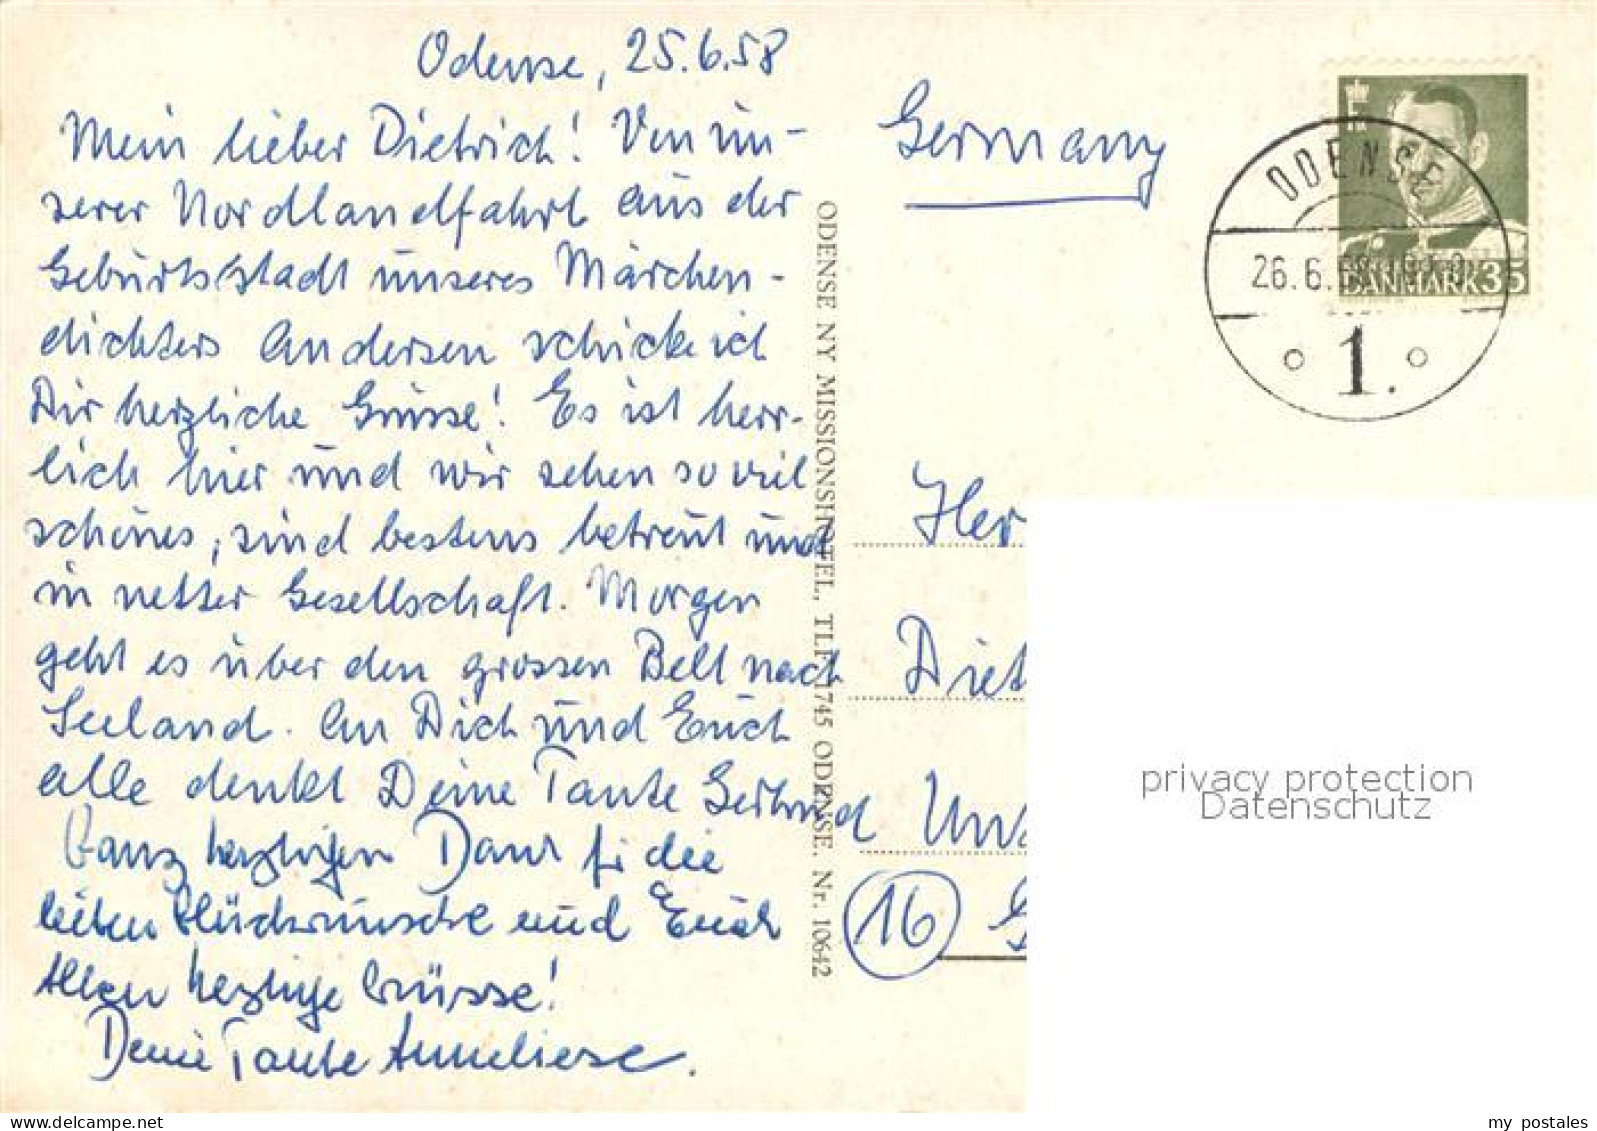 Odense, 25.6.58
Mein lieber Dietrich! Von un-
serer Nordlandfahrt aus der
Geburtsstadt unseres Märchen-
dichters Andersen schicke ich
Dir herzliche Grüsse! Es ist herr-
lich hier und wir sehen so viel
schönes, sind bestens betreut und
in netter Gesellschaft. Morgen
geht es über den grossen Belt nach
Seeland. An Dich und Euch
alle denkt Deine Tante Gertrud
Ganz herzlichen Dank für die
lieben Glückwünsche und Euch
Allen herzliche Grüsse!
Deine Tante Anneliese.
ODENSE NY MISSIONSHOTEL, TLF. 1745 ODENSE. Nr. 10642
Germany
ODENSE
26.6.
1.
DANMARK 35
Her
Diet
16
privacy protection
Datenschutz
my_postales